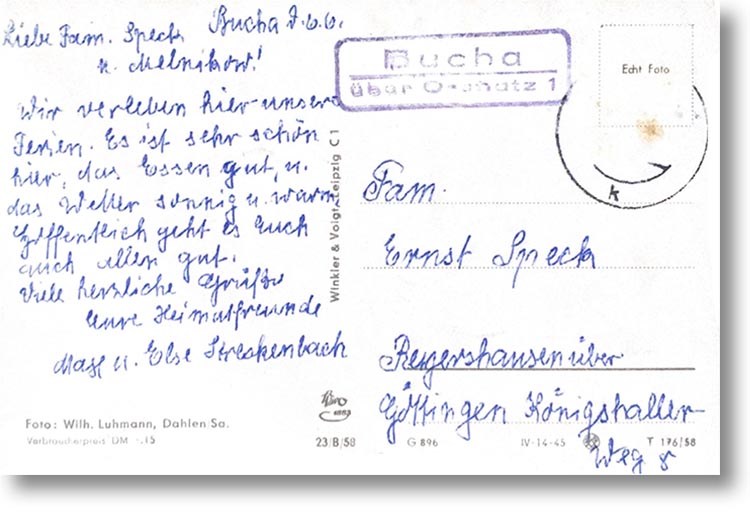 Bucha d. 6.6.
Liebe Fam. Speck
u. Melnikow!
Wir verleben hier unsere
Ferien. Es ist sehr schön
hier, das Essen gut, u.
das Wetter sonnig u. warm.
Hoffentlich geht es Euch
auch allen gut.
Viele herzliche Grüße
Eure Heimatfreunde
u. Else Streckenbach
Bucha
über Oschatz 1
Echt Foto
k
Winkler & Voigt, Leipzig C 1
Fam.
Ernst Speck
Reyershausen über
Göttingen Königsthaller
Weg 8
Foto: Wilh. Luhmann, Dahlen Sa.
Verbraucherpreis DM -.15
23/B/58
G 896
IV-14-45
T 176/58